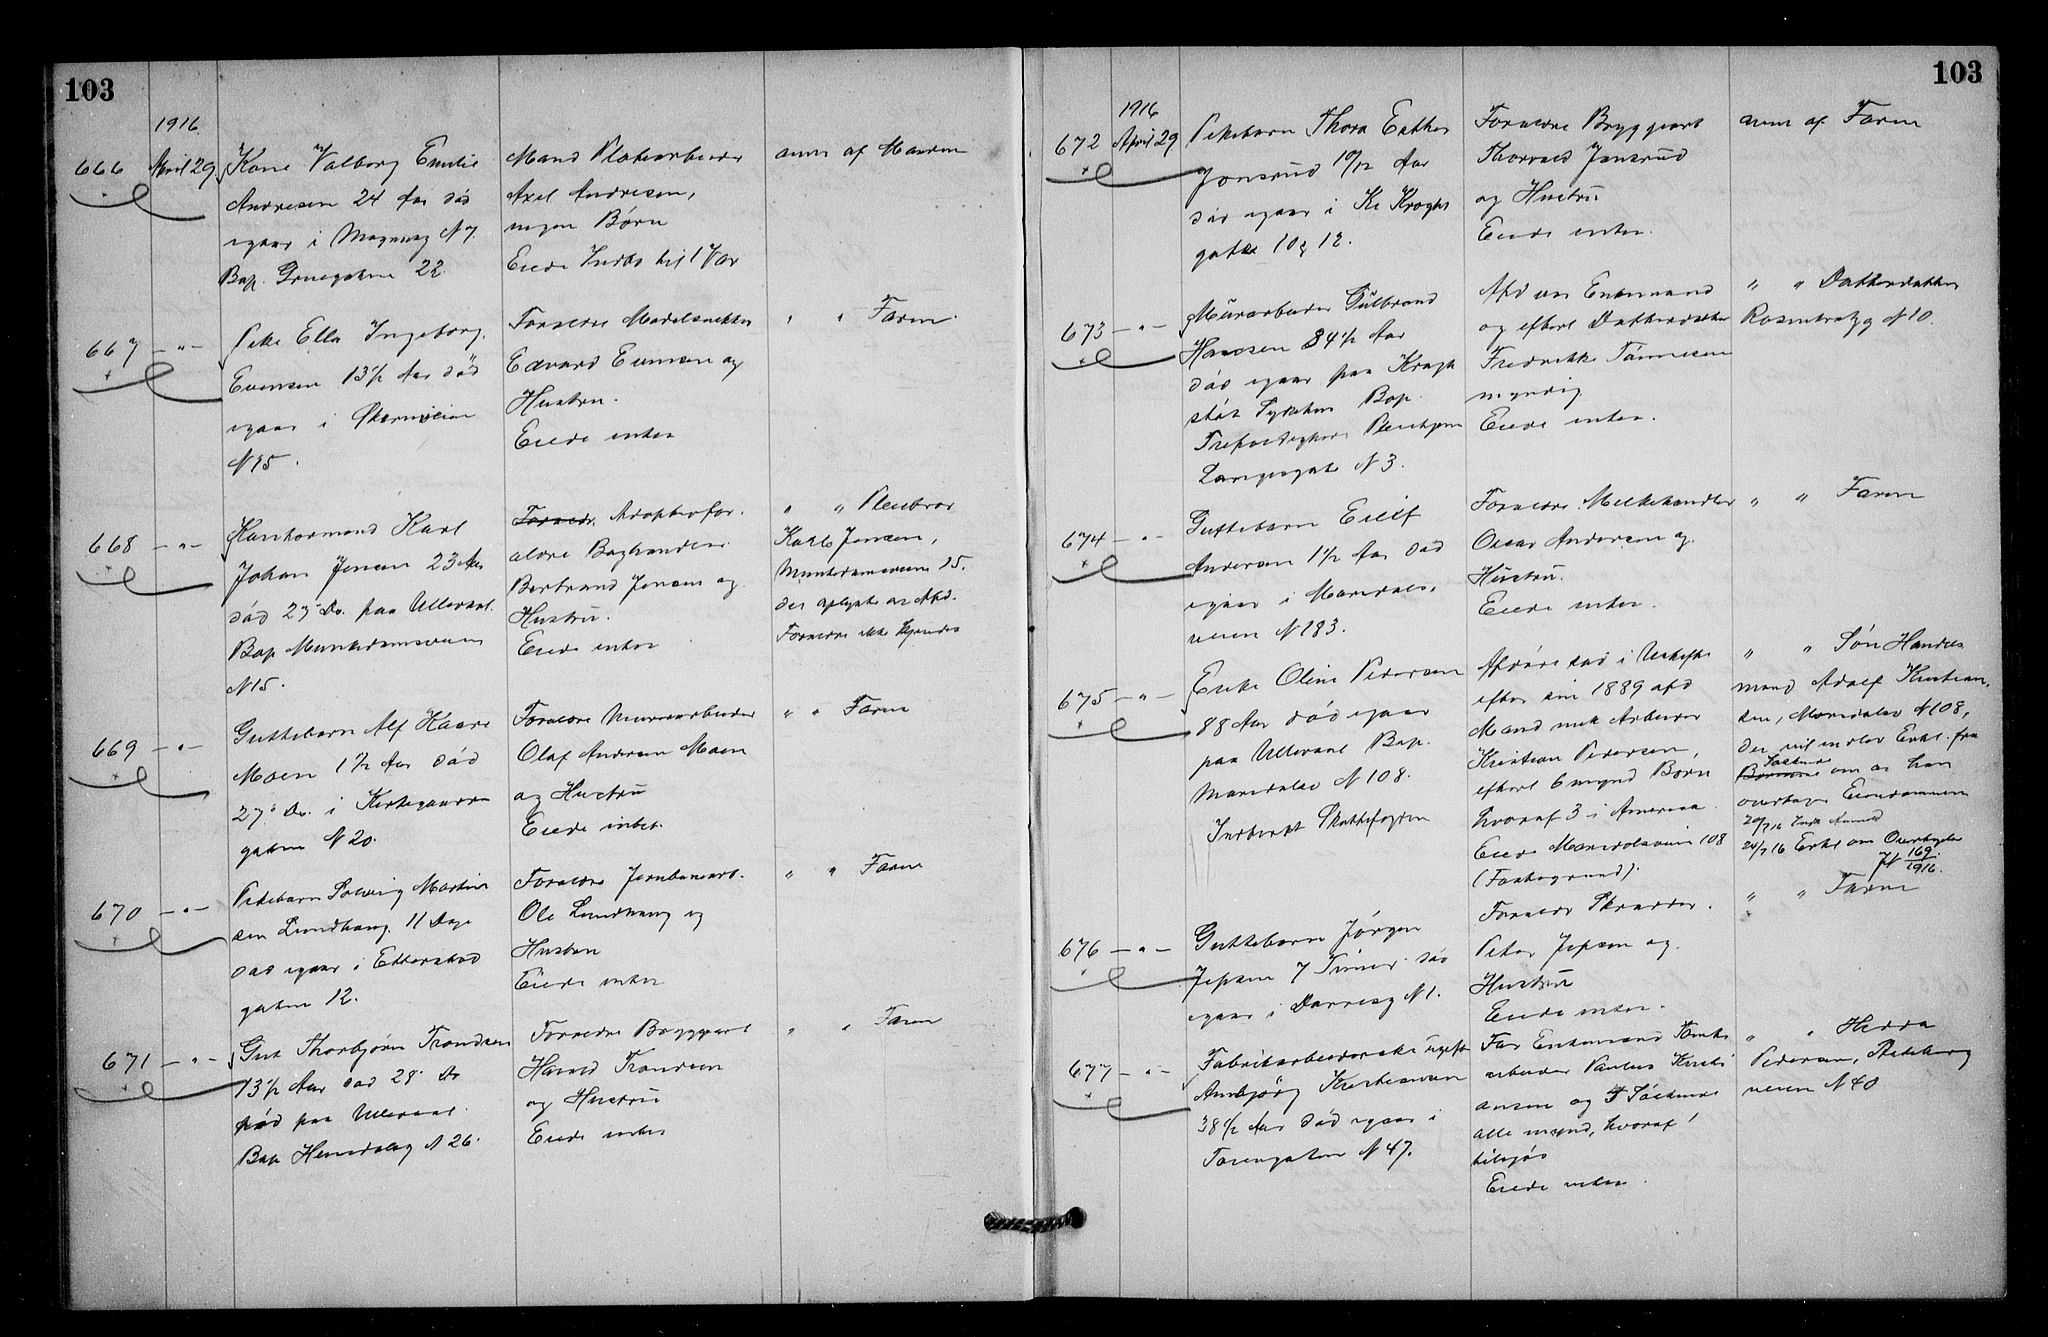 103
1916
666 April 29 Kone Valborg Emilie
Andresen 24 Aar død
igaar i Magnusg N 7.
Bop. Grønegaten 22
Mand Pladearbeider
Axel Andresen,
ingen Børn
Eiede Indbo til 1 Vær
anm af Manden
667 — " — Pike Ella Ingeborg
Evensen 13½ Aar død
igaar i
N 15.
Forældre Modelsnekker
Edvard Evensen og
Hustru.
Eiede intet
" " Faren.
668 — " — Kontormand Karl
Johan Jensen 23 Aar
død 27 Ds. paa Ullevaal.
Bop Munkedamsveien
N 15.
Forældr. Adoptivfor.
ældre Baghandler
Bertrand Jensen og
Hustru.
Eiede intet
" " Pleiebror
Karl Jensen,
Munkedamsveien 15.
der oplyste at Afd.
Forældre ikke kjendes
669 — " — Guttebarn Alf Kaare
Moen 1½ Aar død
27' Ds. i Kirkegaards
gaten N 20.
Forældre Murerarbeider
Olaf Andersen Moen
og Hustru
Eiede intet.
" " Faren
670 — " — Pikebarn Solveig Martin
sen Lundhaug. 11 Dage
død igaar i Etterstad
gaten 12.
Forældre Jernbanearb.
Ole Lundhaug og
Hustru
Eiede intet
" " Faren
671 — " — Gut Thorbjørn Trondsen
13½ Aar død 28' Ds
paa Ullevaal.
Bop Heimdalsg N 26.
Forældre Bryggearb
Harald Trondsen
og Hustru
Eiede intet
" " Faren
103
1916
672 April 29 Pikebarn Thora Esther
Jonsrud 10/12 Aar
død igaar i Kr Kroghs
gate 10 g 12.
Forældre Bryggearb
Thorvald Jonsrud
og Hustru
Eiede intet.
anm af. Faren
673 — " — Murarbeider Gulbrand
Hansen 84½ Aar
død igaar paa Krogh
støt Sykehus Bop.
Trefoldigheds Pleiehjem
Langesgate N 3.
Afd var Enkemand
og efterl Datterdatter
Fredrikke Tønnesen
myndig
Eiede intet.
" " Datterdatter
Rosenkratzg N 10.
674 — " — Guttebarn Eilif
Andersen 1½ Aar død
igaar i Maridals.
veien N 183.
Forældre: Melkehandler
Oscar Andersen og
Hustru.
Eiede intet.
" " Faren
675 — " — Enke Oline Pedersen
88 Aar død igaar
paa Ullevaal Bop.
Maridalsv N 108.
Indberet Skattefogden
Afdøde sad i Uskifte
efter sin 1889 afd
Mand mek Arbeider
Kristian Pedersen,
efterl 6 mynd Børn
hvoraf 3 i Amerika.
Eiede Maridalsveien 108
(Festegrund).
" " Søn Handels
mand Adolf Kristian.
sen, Maridalsv N 108,
der vil indlev Erkl. fra
Søskende
Børnene om at han
overtager Eiendommen
20/7 16
24/7 16 Erkl om Overtagelse
Jr 169/1916.
676 — " — Guttebarn Jørgen
Jepsen 7 Timer død
igaar i Darresg N 1.
Forældre Skrædder.
Peter Jepsen og
Hustru
Eiede intet.
" " Faren
677 — " — Fabrikarbeiderske ugift
Annbjørg Kristiansen
38½ Aar død igaar i
Torvgaten N 47.
Far Enkemand Tomte
arbeider Paulus Kristi
ansen og 4 Søskende
alle mynd, hvoraf 1
tilsjøs
Eiede intet.
" " Hedda
Pedersen,
veien N 40